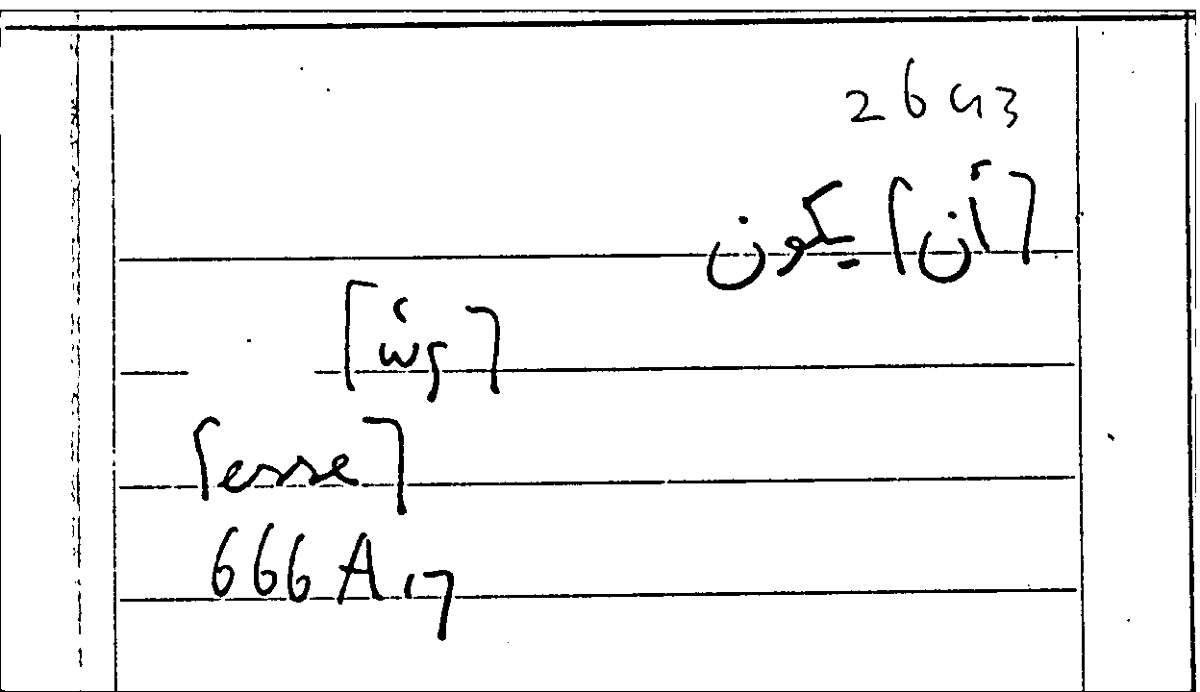 26a3
⌈أن⌉ يكون
⌈ὡς⌉
⌈esse⌉
666 A 17